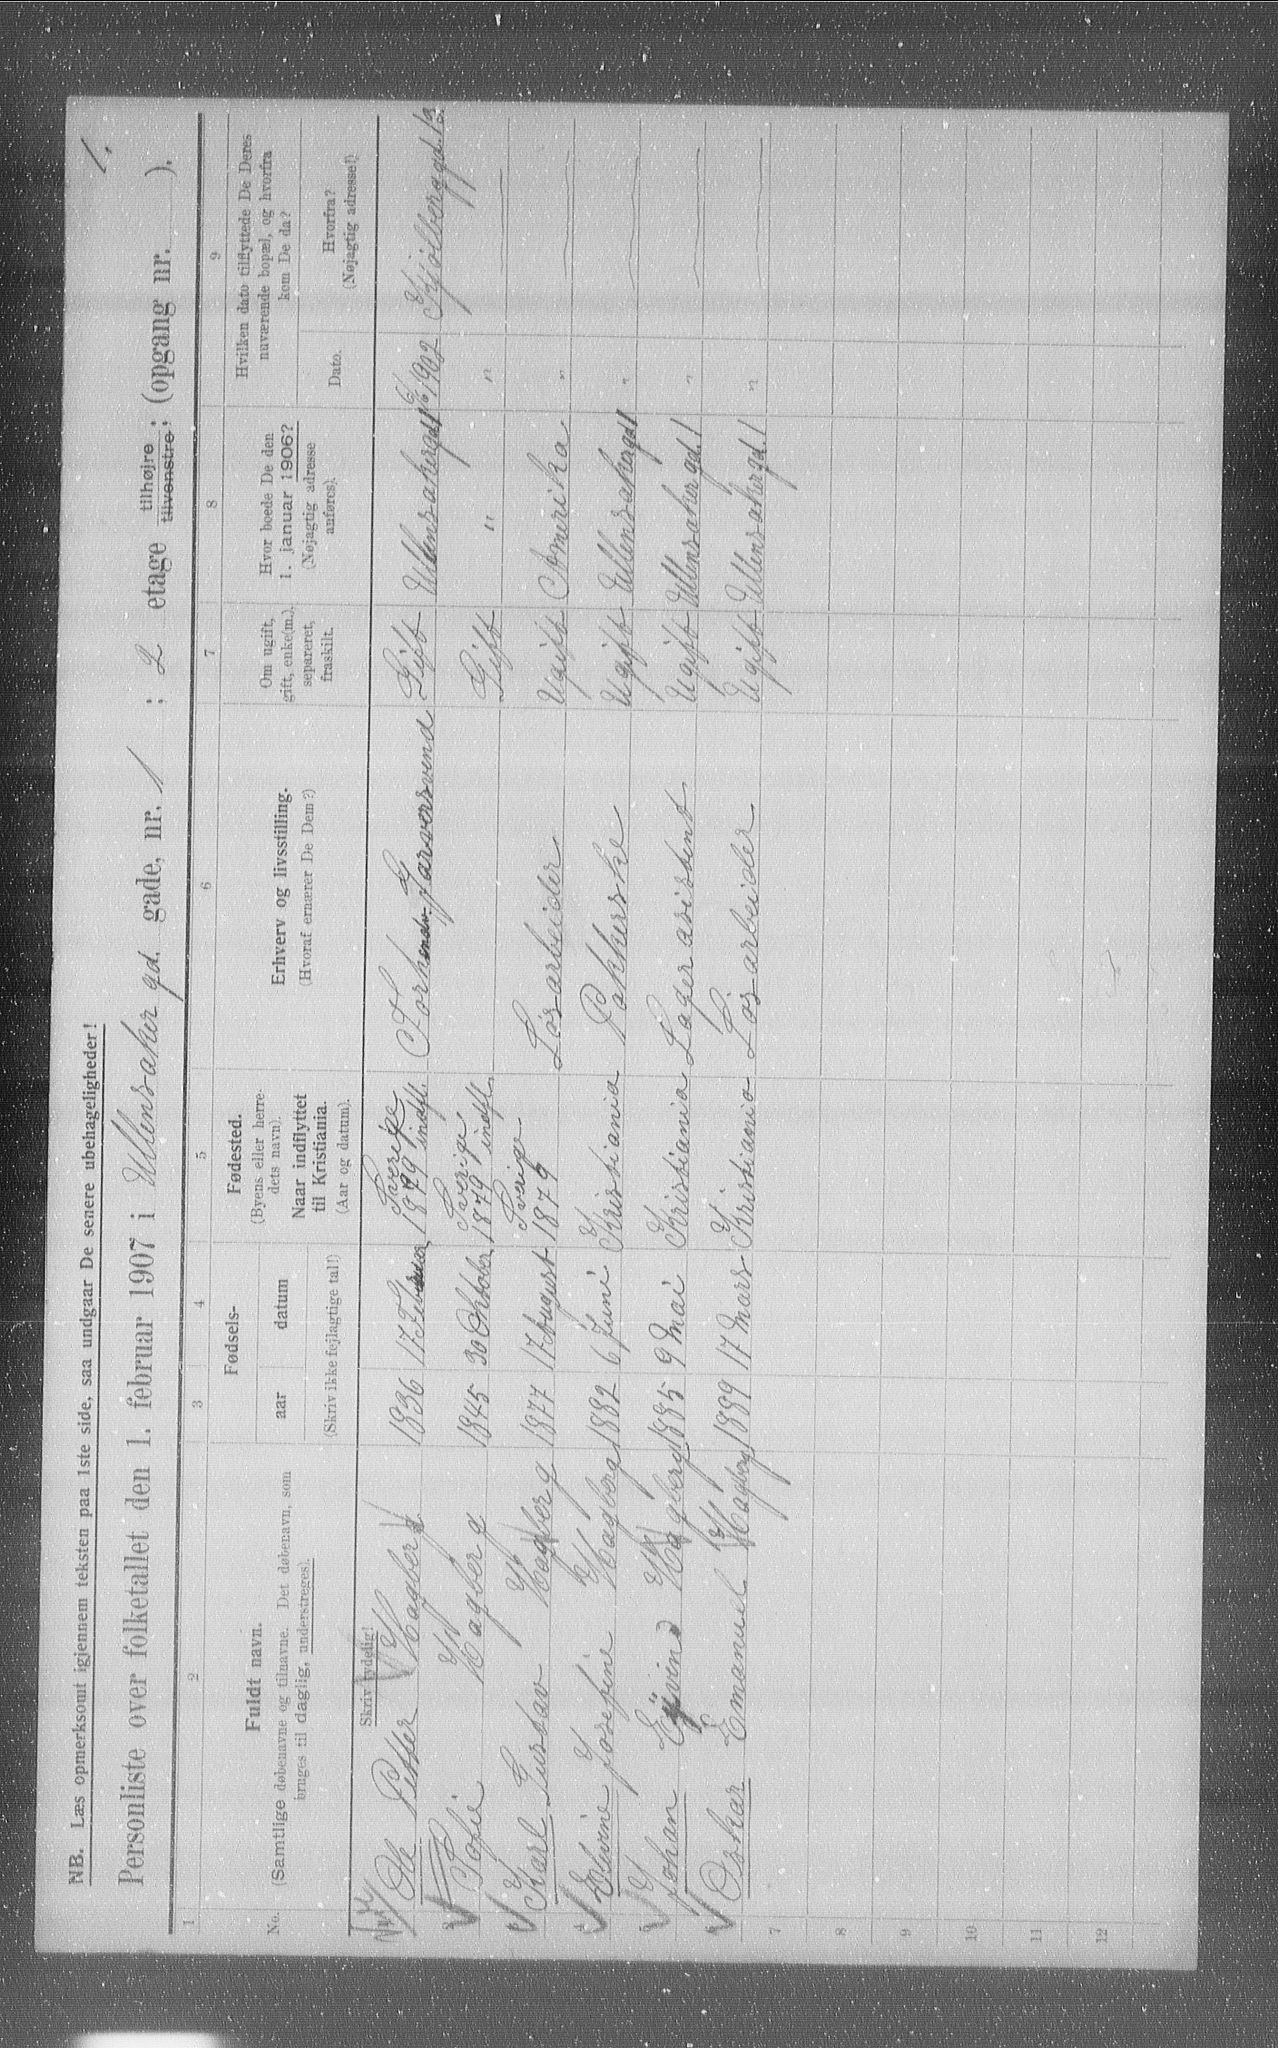 1.
NB. Læs opmerksomt igjennem teksten paa 1ste side, saa undgaar De senere ubehageligheder!
Personliste over folketallet den 1. februar 1907 i Ullensaker gd. gade, nr. 1 ; 2 etage tilhøjre tilvenstre, (opgang nr. ).
1 2 3 4 5 6 7 8 9
No. Fuldt navn. (Samtlige døbenavne og tilnavne. Det døbenavn, som bruges til daglig, understreges). Fødsels- aar datum (Skriv ikke fejlagtige tal!) Fødested. (Byens eller herredets navn). Naar indflyttet til Kristiania. (Aar og datum). Erhverv og livsstilling. (Hvoraf ernærer De Dem?) Om ugift, gift, enke(m.), separeret, fraskilt. Hvor boede De den 1. januar 1906? (Nøjagtig adresse anføres). Hvilken dato tilflyttede De Deres nuværende bopæl, og hvorfra kom De da? Dato. Hvorfra? (Nøjagtig adresse!)
Skriv tydelig!
Ole Petter Hagberg 1836 17 Februar Sverige 1879 indfl. Forhenv. Garversvend Gift Ullensakergd 1 1902 Kjølberggd. 13
Sofie Hagberg 1845 30 Oktober Sverige 1879 indfl. Gift " "
Karl Gustav Hagberg 1877 17 August Sverige 1879 Løsarbeider Ugift Amerika "
Elvine Josefine Hagberg 1882 6 Juni Kristiania Pakkerske Ugift Ullensakergd 1 "
Johan Eivind Hagberg 1885 9 Mai Kristiania Lagerasistent Ugift Ullensakergd. 1 "
Oskar Emanuel Hagberg 1889 17 Mars Kristiania Løsarbeider Ugift Ullensakergd. 1 "
7
8
9
10
11
12